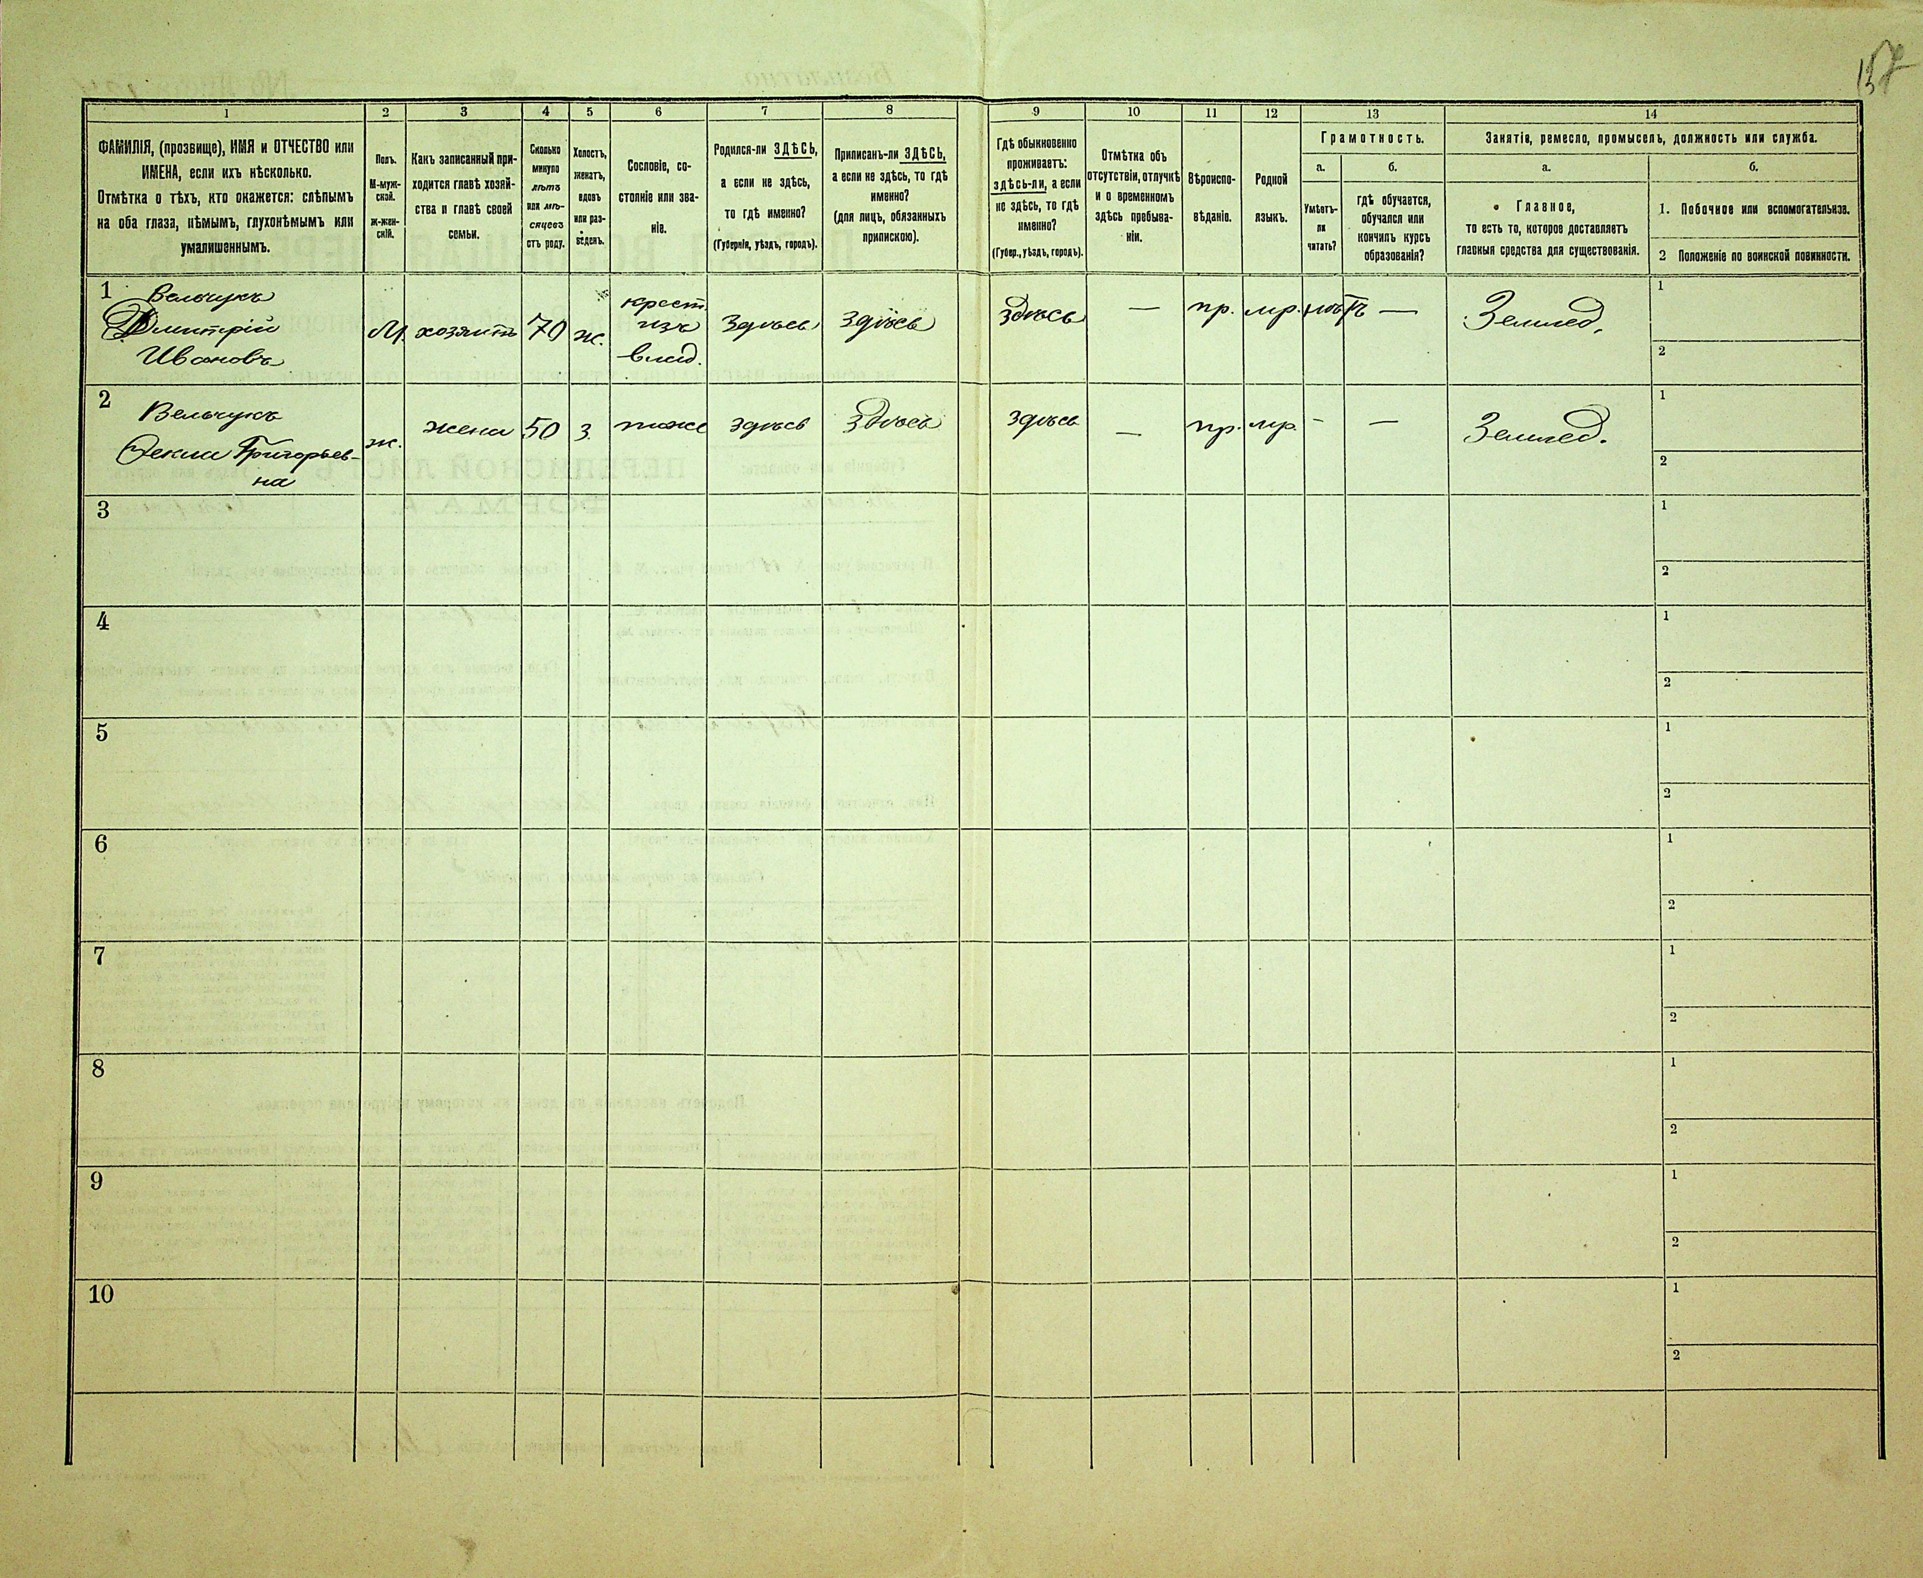 157
1 2 3 4 5 6 7 8 9 10 11 12 13 14
ФАМИЛІЯ, (прозвище), ИМЯ и ОТЧЕСТВО или
ИМЕНА, если ихъ нѣсколько.
Отмѣтка о тѣхъ, кто окажется: слѣпымъ
на оба глаза, нѣмымъ, глухонѣмымъ или
умалишеннымъ.
Полъ.
М-муж-
ской.
ж-жен-
скій.
Какъ записанный при-
ходится главѣ хозяй-
ства и главѣ своей
семьи.
Сколько
минуло
лѣтъ
или мѣ-
сяцевъ
отъ роду.
Холостъ,
женатъ,
вдовъ
или раз-
веденъ.
Сословіе, со-
стояніе или зва-
ніе.
Родился-ли ЗДѢСЬ,
а если не здѣсь,
то гдѣ именно?
(Губернія, уѣздъ, городъ).
Приписанъ-ли ЗДѢСЬ,
а если не здѣсь, то гдѣ
именно?
(для лицъ, обязанныхъ
припискою).
Гдѣ обыкновенно
проживаетъ:
здѣсь-ли, а если
не здѣсь, то гдѣ
именно?
(Губер., уѣздъ, городъ).
Отмѣтка объ
отсутствіи, отлучкѣ
и о временномъ
здѣсь пребыва-
ніи.
Вѣроиспо-
вѣданіе.
Родной
языкъ.
Грамотность.
а.
Умѣетъ-
ли
читать?
б.
гдѣ обучается,
обучался или
кончилъ курсъ
образованія?
Занятія, ремесло, промыселъ, должность или служба.
а.
Главное,
то есть то, которое доставляетъ
главныя средства для существованія.
б.
1. Побочное или вспомогательное.
2 Положеніе по воинской повинности.
1 Вельчукъ
Дмитрій
Ивановъ
М. хозяинъ 70 ж.
крест.
изъ
влад.
здѣсь здѣсь здѣсь — пр. мр. нѣтъ — Землед.
1
2
2 Вельчукъ
Фекла Григорьев-
на
ж. жена 50 з. тоже здѣсь здѣсь здѣсь — пр. мр. - — Землед.
1
2
3
1
2
4
1
2
5
1
2
6
1
2
7
1
2
8
1
2
9
1
2
10
1
2